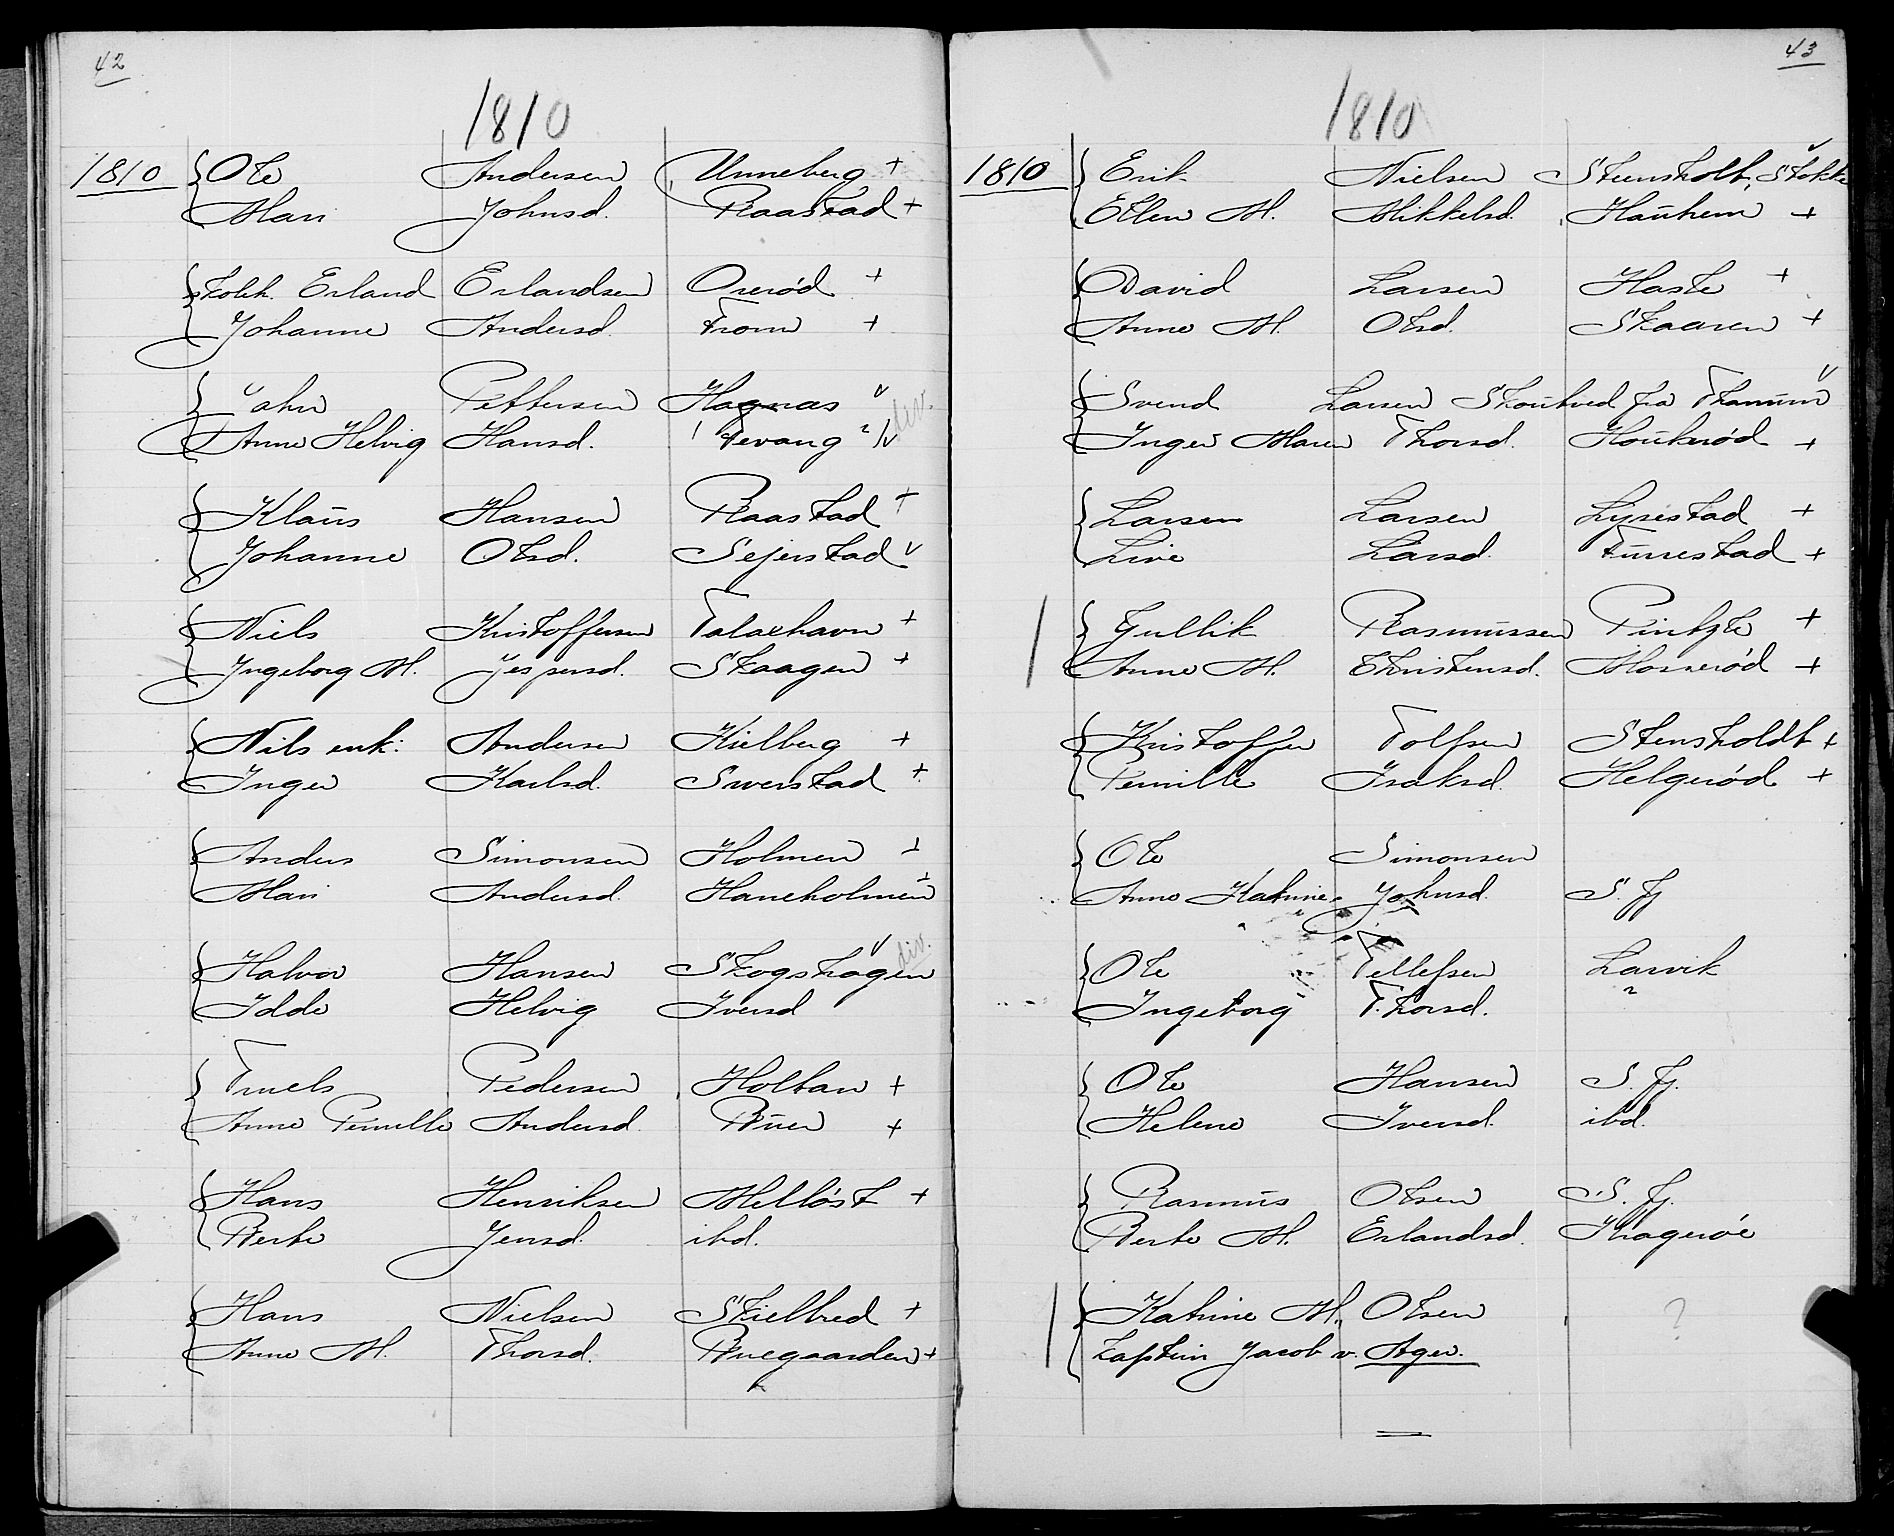 42
1810
1810 Ole Andersen Unneberg +
Mari Johnsd. Raastad +
Erland Erlandsen Orerød +
Johanne Andersd. From +
John Pettersen Hagnæs v
Anne Helvig Hansd. Tevang " v div.
Klaus Hansen Raastad +
Johanne Olsd. Sejerstad v
Niels Kristoffersen Valaehavn +
Ingeborg M. Jespersd. Skaagen +
Nils enk: Andersen Kielberg +
Inger Karlsd. Swerstad +
Anders Simonsen Holmen +
Mari Andersd. Haneholmen +
Halvor Hansen Skogshagen v div.
Idde Helvig Iversd
Truels Pedersen Holtan +
Anne Pernille Andersd. Buer +
Hans Henriksen Melløst +
Berte Jensd. ibd.
Hans Nielsen Skielbred +
Anne M. Thorsd. Bruegaarden +
43
1810
1810 Erik Nielsen Steensholt, Stokke v
Ellen M. Mikkelsd. Haukem +
David Larsen Hasle +
Anne M. Olsd. Skaaren +
Svend Larsen Skoutved fra Thanum v
Inger Maren Thorsd. Houkerød +
Larsen Larsen Lyrestad +
Live Larsd. Furrestad +
Gullik Rasmussen Pintzle +
Anne M. Christensd. Mosserød +
Kristoffer Tolfsen Stensholdt +
Pernille Isaksd. Helgerød +
Ole Simonsen
Anne Katrine Johnsd. S. fj
Ole Tellefsen Larvik
Ingeborg Thorsd. "
Ole Hansen S. fj.
Helene Iversd. ibd.
Rasmus Olsen S. fj.
Berte M. Erlandsd. Kragerøe
Katrine M. Olsen ?
Kaptein Jacob v. Ager.